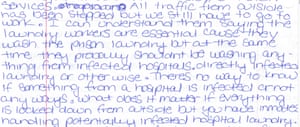 services. All traffic from outside
has been stopped but we still have to go to
work. I can understand them saying the
laundry workers are essential cause they
wash the prison laundry but at the same
time they probably shouldnt be washing any-
thing from infected hospitals. directly infected
laundry or other wise. There's no way to know
if something from a hospital is infected or not
any ways. what does it matter if everything
is locked down from outside but you have inmates
handling potentially infected hospital laundry.